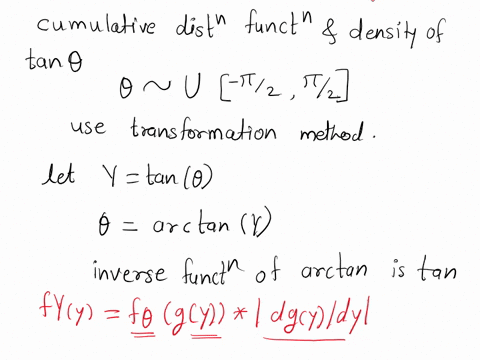 cumulative distⁿ functⁿ & density of
tanθ
θ ~ U [-π/2, π/2]
use transformation method.
let Y = tan(θ)
θ = arctan (Y)
inverse functⁿ of arctan is tan
fY(y) = fθ (g(y)) * | dg(y)/dy|